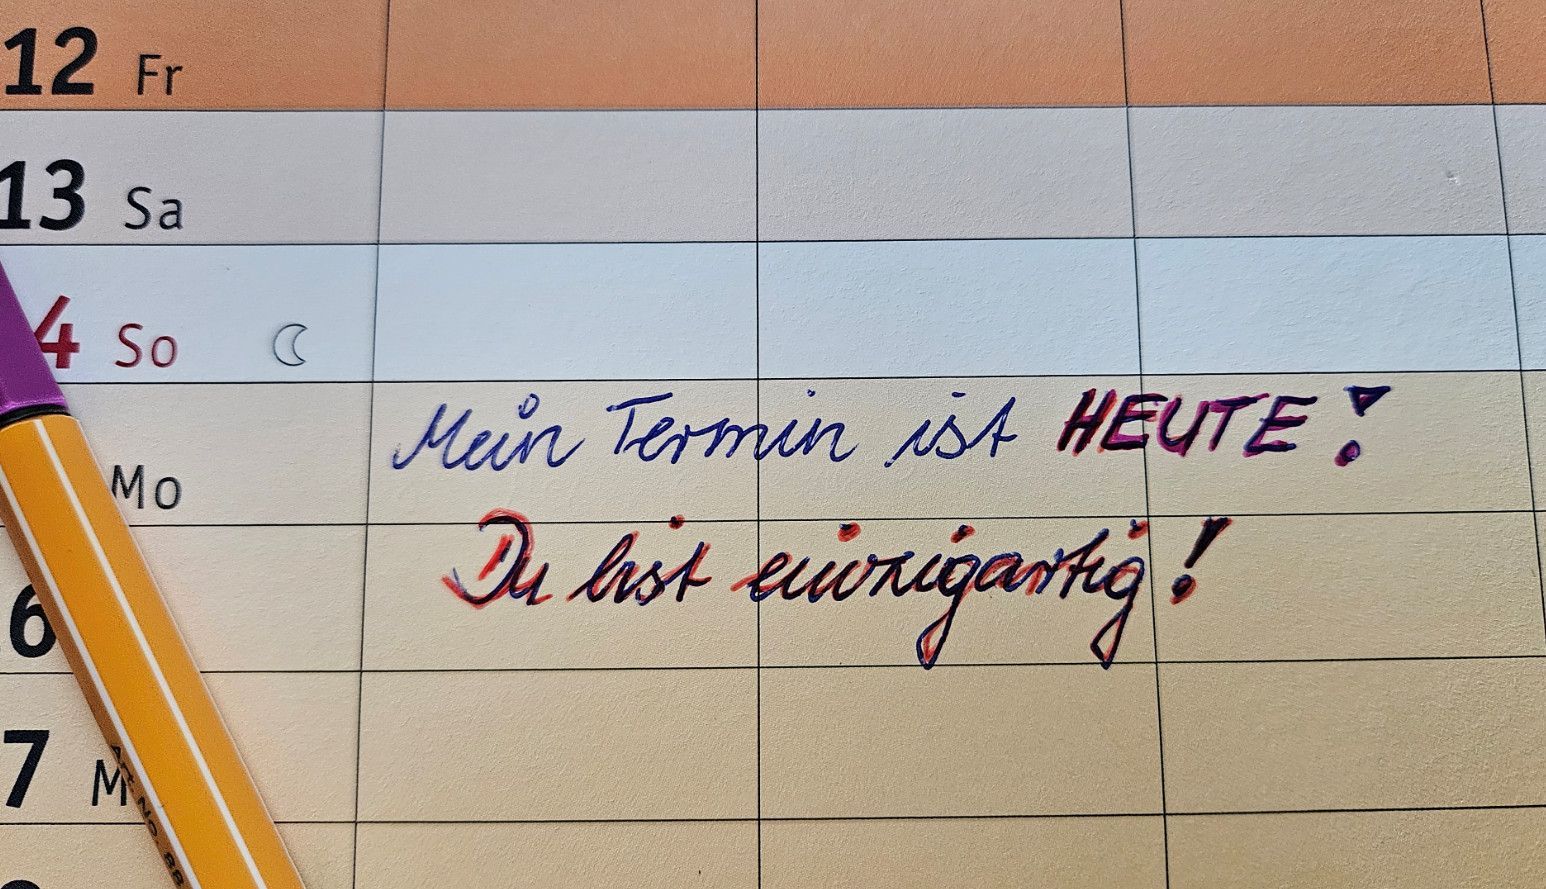 12 Fr
13 Sa
4 So
Mein Termin ist HEUTE!
Mo
Du bist einzigartig!
6
7 M
Art. No. 88